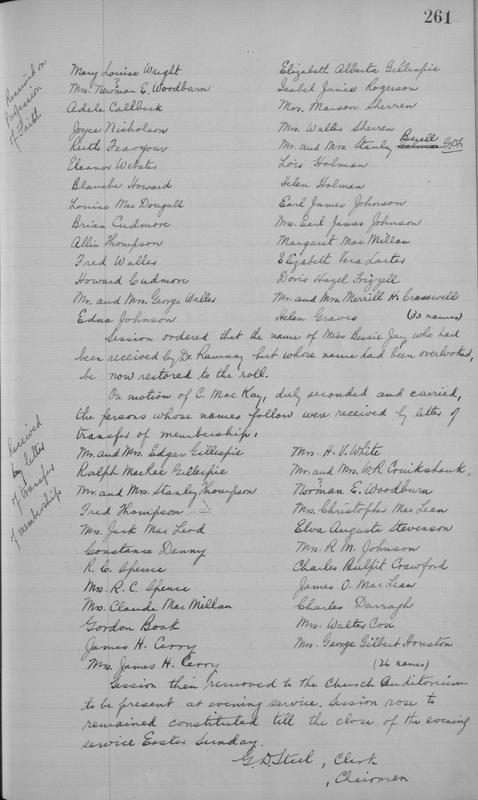 261
Received on
Profession
of Faith
Mary Louise Wright
Mrs. Newman E. Woodburn
Adele Callbeck
Joyce Nicholson
Ruth
Eleanor Webster
Blanche Howard
Louise MacDougall
Brian Cudmore
Allin Thompson
Fred Waller
Howard Cudmore
Mr. and Mrs. George Waller
Edna Johnson
Elizabeth Alberta Gillespie
Isabel Janie Rogerson
Mrs. Marson Sherren
Mrs. Walter Sherren
Mr. and Mrs. Stanley Burell
Lois Holman
Helen Holman
Earl James Johnson
Mrs. Earl James Johnson
Margaret MacMillan
Elizabeth Vera Larter
Doris Hazel Frizzell
Mr. and Mrs. Merrill H. Crasswell
Helen Graves (30 names)
Session ordered that the name of Miss Bessie Jay, who had
been received by Dr. Ramsay but whose name had been overlooked,
be now restored to the roll.
On motion of C. MacKay, duly seconded and carried,
the persons whose names follow were received by letter of
transfer of membership:
Received
by letter
of transfer
of membership
Mr. and Mrs. Edgar Gillespie
Ralph MacRae Gillespie
Mr. and Mrs. Stanley Thompson
Fred Thompson
Mrs. Jack MacLeod
Constance Denny
R. C. Spence
Mrs. R. C. Spence
Mrs. Claude MacMillan
Gordon Boak
James H. Cerry
Mrs. James H. Cerry
Mrs. H. V. White
Mr. and Mrs. W. R. Cruikshank
?
Norman E. Woodburn
Mrs. Christopher MacLean
Elva Augusta Stevenson
Mrs. R. M. Johnson
Charles Bulpit Crawford
James O. MacLean
Charles Darragh
Mrs. Walter Cox
Mrs. George Gilbert Houston
(26 names)
Session then removed to the Church Auditorium
to be present at evening service. Session rose to
remained constituted till the close of the evening
service Easter Sunday.
G. D. Steel, Clerk
, Chairman